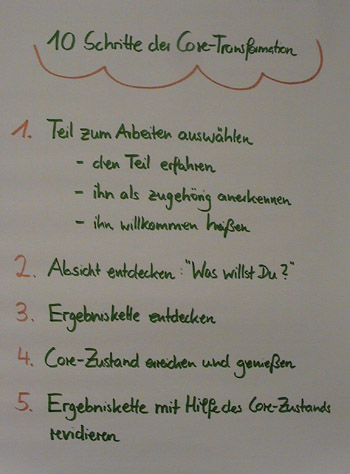 10 Schritte der Core-Transformation
1. Teil zum Arbeiten auswählen
- den Teil erfahren
- ihn als zugehörig anerkennen
- ihn willkommen heißen
2. Absicht entdecken: "Was willst Du?"
3. Ergebniskette entdecken
4. Core-Zustand erreichen und genießen
5. Ergebniskette mit Hilfe des Core-Zustands
revidieren